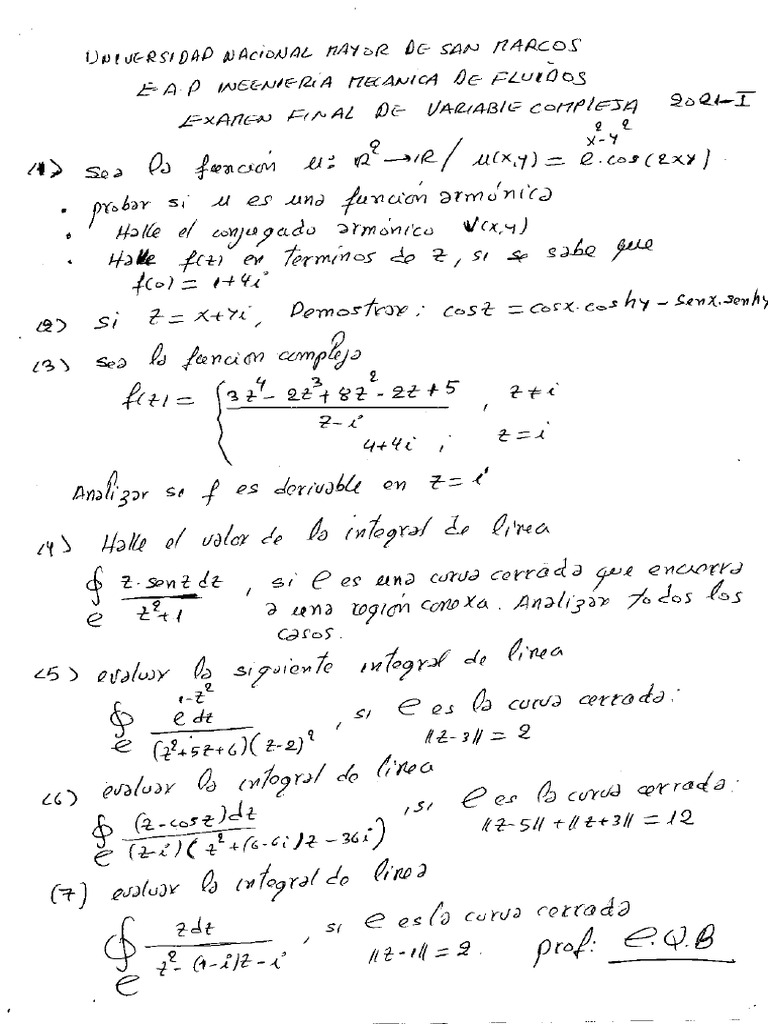 UNIVERSIDAD NACIONAL MAYOR DE SAN MARCOS
E.A.P INGENIERIA MECANICA DE FLUIDOS
EXAMEN FINAL DE VARIABLE COMPLEJA 2021-I
(1) Sea la función u: R² → R / u(x,y) = e^(x²-y²).cos(2xy).
• probar si u es una función armónica
• Halle el conjugado armónico V(x,y)
• Halle f(z) en terminos de z, si se sabe que
f(0) = 1+4i
(2) Si z = x+yi, Demostrar: cosz = cosx.coshy - senx.senhy
(3) Sea la función compleja
f(z) = { (3z⁴ - 2z³ + 8z² - 2z + 5)/(z-i) , z ≠ i
4+4i ; z = i
Analizar se f es derivable en z = i
(4) Halle el valor de la integral de linea
∮_C z.senz dz/(z²+1) , si C es una curva cerrada que encierra
a una región conexa. Analizar todos los
casos.
(5) evaluar la siguiente integral de linea
∮_C e^(1-z²) dz/((z²+5z+6)(z-2)²) , si C es la curva cerrada:
||z-3|| = 2
(6) evaluar la integral de linea
∮_C (z-cosz)dz/((z-i)(z²+(6-6i)z-36i)) , si C es la curva cerrada:
||z-5||+||z+3|| = 12
(7) evaluar la integral de linea
∮_C zdz/(z²-(1-i)z-i) , si C es la curva cerrada
||z-1|| = 2. prof: C.Q.B